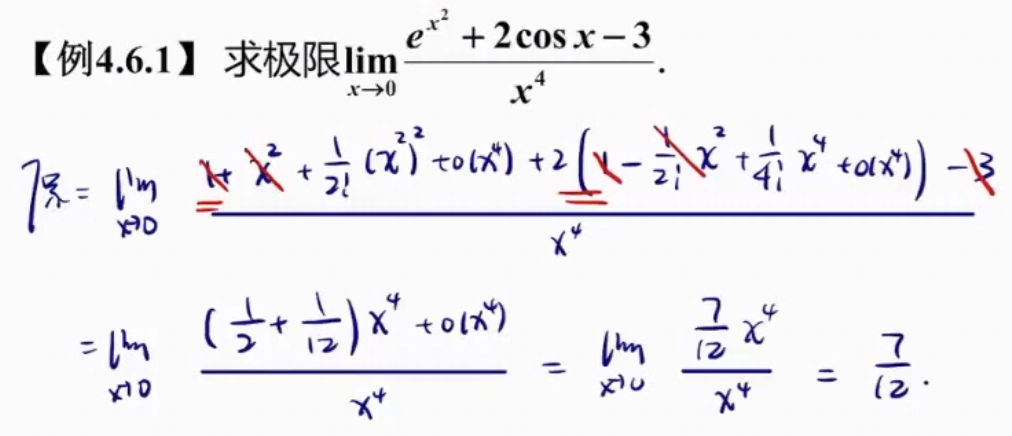 【例4.6.1】 求极限 lim_{x→0} (e^{x^2} + 2cos x − 3)/x^4.
原 = lim_{x→0} (1 + x^2 + 1/2! (x^2)^2 + o(x^4) + 2(1 − 1/2! x^2 + 1/4! x^4 + o(x^4)) − 3)/x^4
= lim_{x→0} ((1/2 + 1/12) x^4 + o(x^4))/x^4 = lim_{x→0} (7/12 x^4)/x^4 = 7/12.